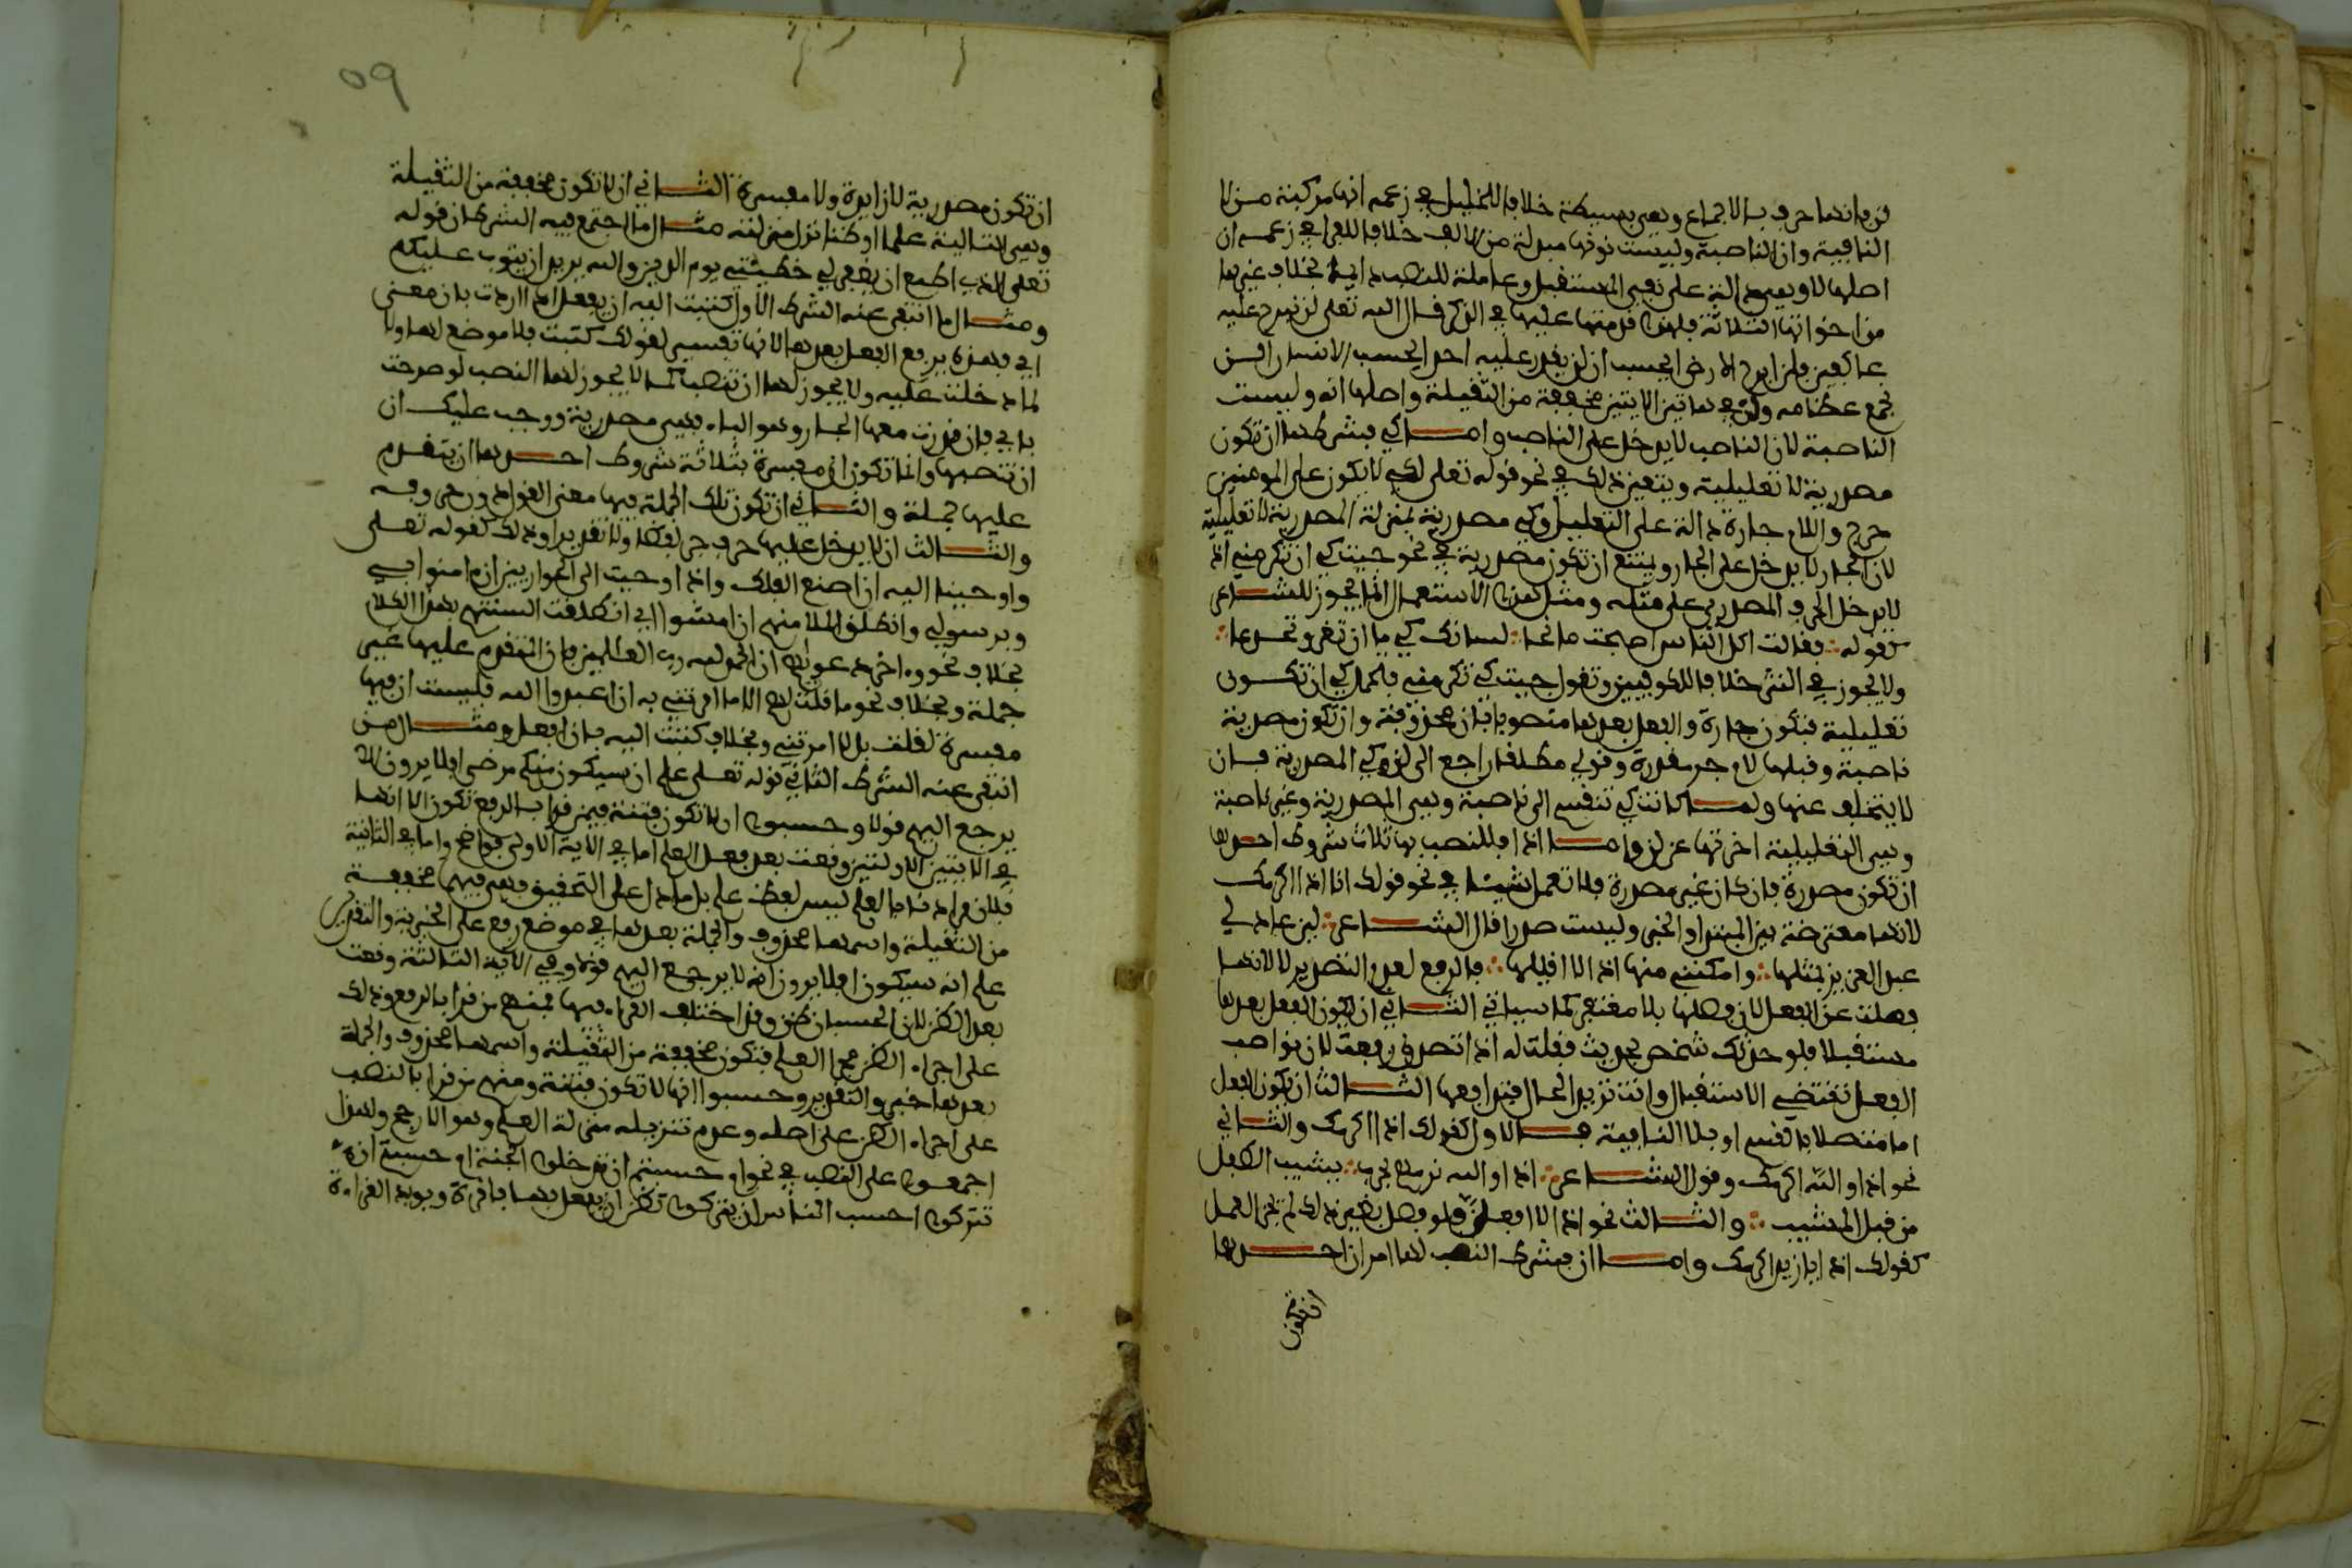 فن فانها حرف بالاجماع وهي بسيطة خلافا للخليل في زعمه انها مركبة من لا
النافية وان الناصبة وليست نونها مبدلة من الالف خلافا للفراء في زعمه ان
اصلها لا وهي دالة على نفي المستقبل وعاملة للنصب دايما بخلاف غيرها
من اخواتها الثلاثة فلهذا قدمتها عليها في الذكر قال الله تعلى لن نبرح عليه
عاكفين فلن ابرح الارض ايحسب ان لن يقدر عليه احد ايحسب الانسان الن
نجمع عظامه وان في هاتين الايتين مخففة من الثقيلة واصلها انه وليست
الناصبة لان الناصب لا يدخل على الناصب واما كي فشرطها ان تكون
مصدرية لا تعليلية ويتعين ذلك في نحو قوله تعلى لكي لا يكون على المومنين
حرج واللام جارة دالة على التعليل وكي مصدرية بمنزلة ان المصدرية لا تعليلية
لان الجار لا يدخل على الجار ويمتنع ان تكون مصدرية في نحو جيتك كي ان تكرمني اذ
لا يدخل الحرف المصدري على مثله ومثل هذا الاستعمال انما يجوز للشاعر
كقوله فقالت اكل الناس اصبحت مانحا لسانك كي ما ان تغر وتخدعا
ولا يجوز في النثر خلافا للكوفيين وتقول جيتك كي تكرمني فتحتمل كي ان تكون
تعليلية فتكون جارة والفعل بعدها منصوبا بان محذوفة وان تكون مصدرية
ناصبة وقبلها لام جر مقدرة وقولي مطلقا راجع الى لن وكي المصدرية فان
لا يتخلف عنها ولما كانت كي تنقسم الى ناصبة وهي المصدرية وغير ناصبة
وهي التعليلية اخرتها عن لن واما اذا فللنصب بها ثلاث شروط احدها
ان تكون مصدرة فان كان غير مصدرة فلا تعمل شيئا في نحو قولك انا اذا اكرمك
لانها معترضة بين المبتدا والخبر وليست صدرا قال الشاعر لين عاد لي
عبد العزيز بمثلها وامكنني منها اذا لا اقيلها فالرفع لعدم التصدير لا لانها
فصلت عن الفعل لان فصلها بلا مغتفر كما سياتي الثاني ان يكون الفعل بعدها
مستقبلا فلو حدثك شخص بحديث فقلت له اذا تصدق رفعت لان نواصب
الفعل تقتضي الاستقبال وانت تريد الحال فتدافعا الثالث ان يكون الفعل
اما متصلا بالقسم او بلا النافية فالاول كقولك اذا اكرمك والثاني
نحو اذا والله اكرمك وقول الشاعر اذا والله نرميهم بحرب يشيب الطفل
من قبل المشيب والثالث نحو اذا لا افعل فلو فصل بغير ذلك لم يجز العمل
كقولك اذا يا زيد اكرمك واما ان فشرط النصب لها امران احدها
ان تكون
٥٩
ان تكون مصدرية لا زايدة ولا مفسرة الثاني ان لا تكون مخففة من الثقيلة
وهي التالية علما او ظنا نزل منزلته مثال ما اجتمع فيه الشرطان قوله
تعلى الذي اطمع ان يغفر لي خطيئتي يوم الدين والله يريد ان يتوب عليكم
ومثال ما انتفى عنه الشرط الاول كتبت اليه ان يفعل اذا اردت بان معنى
اي فهذه يرفع الفعل بعدها لانها تفسير لقولك كتبت فلا موضع لها ولا
لما دخلت عليه ولا يجوز لها ان تنصب كما لا يجوز لها النصب لو صرحت
باي فان قدرت معها الجار وهو الباء فهي مصدرية ووجب عليك ان
ان تنصبها وانما تكون ان مفسرة بثلاثة شروط احدها ان يتقدم
عليها جملة والثاني ان تكون تلك الجملة فيها معنى القول دون حروفه
والثالث ان لا يدخل عليها حرف جر لفظا ولا تقديرا وذلك كقوله تعلى
واوحينا اليه ان اصنع الفلك واذ اوحيت الى الحواريين ان ءامنوا بي
وبرسولي وانطلق الملا منهم ان امشوا اي انطلقت السنتهم بهذا الكلام
بخلاف نحو وءاخر دعواهم ان الحمد لله رب العالمين فان المتقدم عليها غير
جملة وبخلاف نحو ما قلت لهم الا ما امرتني به ان اعبدوا الله فليست ان فيها
مفسرة لقلت بل لا امرتني وبخلاف كتبت اليه بان افعل ومثال من
انتفى عنه الشرط الثاني قوله تعلى علم ان سيكون منكم مرضى افلا يرون الا
يرجع اليهم قولا وحسبوا ان لا تكون فتنة فيمن قرا بالرفع تكون الا انها
في الايتين الاولتين وقعت بعد فعل العلم اما في الاية الاولى فواضح واما في الثانية
فلان مرادنا بالعلم ليس لفظ علم بل ما دل على التحقيق فهي فيهما مخففة
من الثقيلة واسمها محذوف والجملة بعدها في موضع رفع على الخبرية والتقدير
علم انه سيكون افلا يرون انه لا يرجع اليهم قولا وفي الاية الثالثة وقعت
بعد الظن لان الحسبان ظن وقد اختلف القراء فيها فمنهم من قرا بالرفع وذلك
على اجراء الظن مجرا العلم فتكون مخففة من الثقيلة واسمها محذوف والجملة
بعدها خبر والتقدير وحسبوا انها لا تكون فتنة ومنهم من قرا بالنصب
على اجراء الظن على اصله وعدم تنزيله منزلة العلم وهو الارجح ولهذا
اجمعوا على النصب في نحو ام حسبتم ان تدخلوا الجنة ام حسبتم ان
تتركوا احسب الناس ان يتركوا تظن ان يفعل بها فاقرة ويويد القراءة